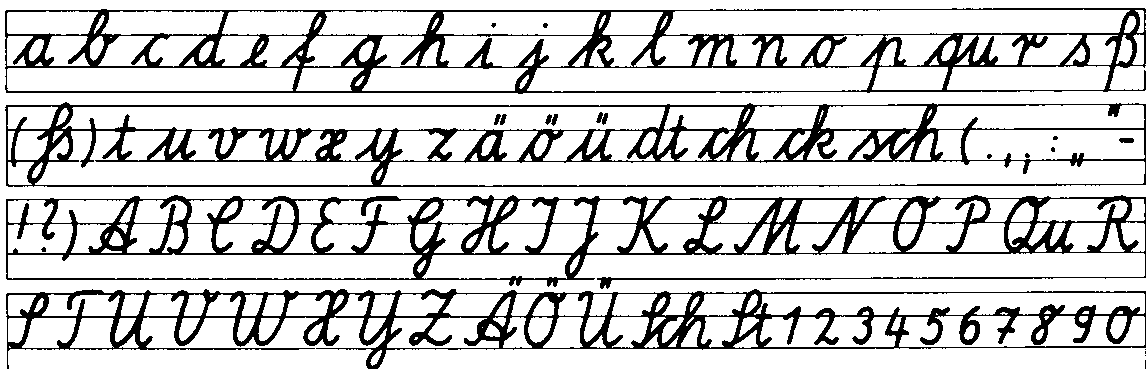 a b c d e f g h i j k l m n o p qu r s ß
(ſs) t u v w x y z ä ö ü dt ch ck sch ( . , ; : „ " -
! ? ) A B C D E F G H I J K L M N O P Qu R
S T U V W X Y Z Ä Ö Ü Sch St 1 2 3 4 5 6 7 8 9 0